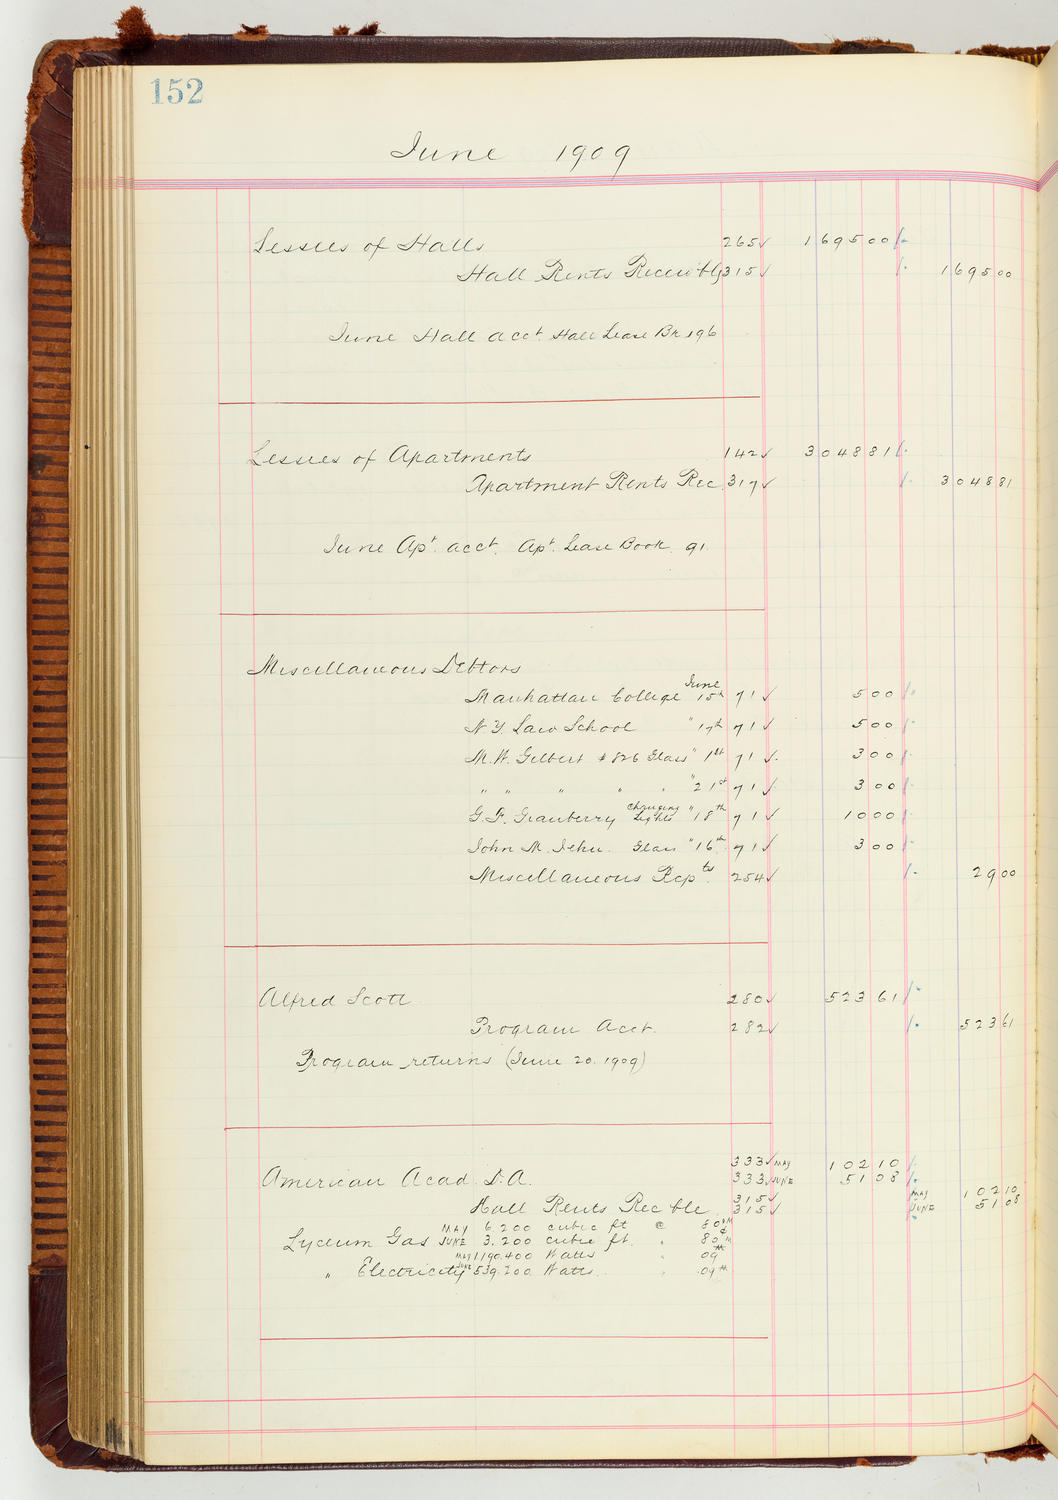 152
June 1909
Lessees of Halls 265 ✓ 1695 00
Hall Rents Receivbl 315 ✓ 1695 00
June Hall acct. Hall Lease Bk 196
Lessees of Apartments 142 ✓ 3048 81
Apartment Rents Rec. 317 ✓ 3048 81
June Apt. acct. Apt. Lease Book 91.
Miscellaneous Debtors
June
Manhattan College 15th 71 ✓ 5 00
N.Y. Law School " 17th 71 ✓ 5 00
M.W. Gilbert #826 Glass " 1st 71 ✓ 3 00
" " " " " " 21st 71 ✓ 3 00
G.F. Granberry Changing Lights " 18th 71 ✓ 10 00
John M. Glass " 16th 71 ✓ 3 00
Miscellaneous Rcpts. 254 ✓ 29 00
Alfred Scott 280 ✓ 523 61
Program Acct. 282 ✓ 523 61
Program returns (June 20. 1909)
American Acad. D.A. 333 ✓ MAY 102 10
333 ✓ JUNE 51 08
Hall Rents Rec ble 315 ✓ MAY 102 10
315 ✓ JUNE 51 08
MAY 6.200 cubic ft @ 80
Lyceum Gas JUNE 3.200 cubic ft. " 80
MAY 1,190.400 Watts " 09
" Electricity JUNE 539.200 Watts " .09